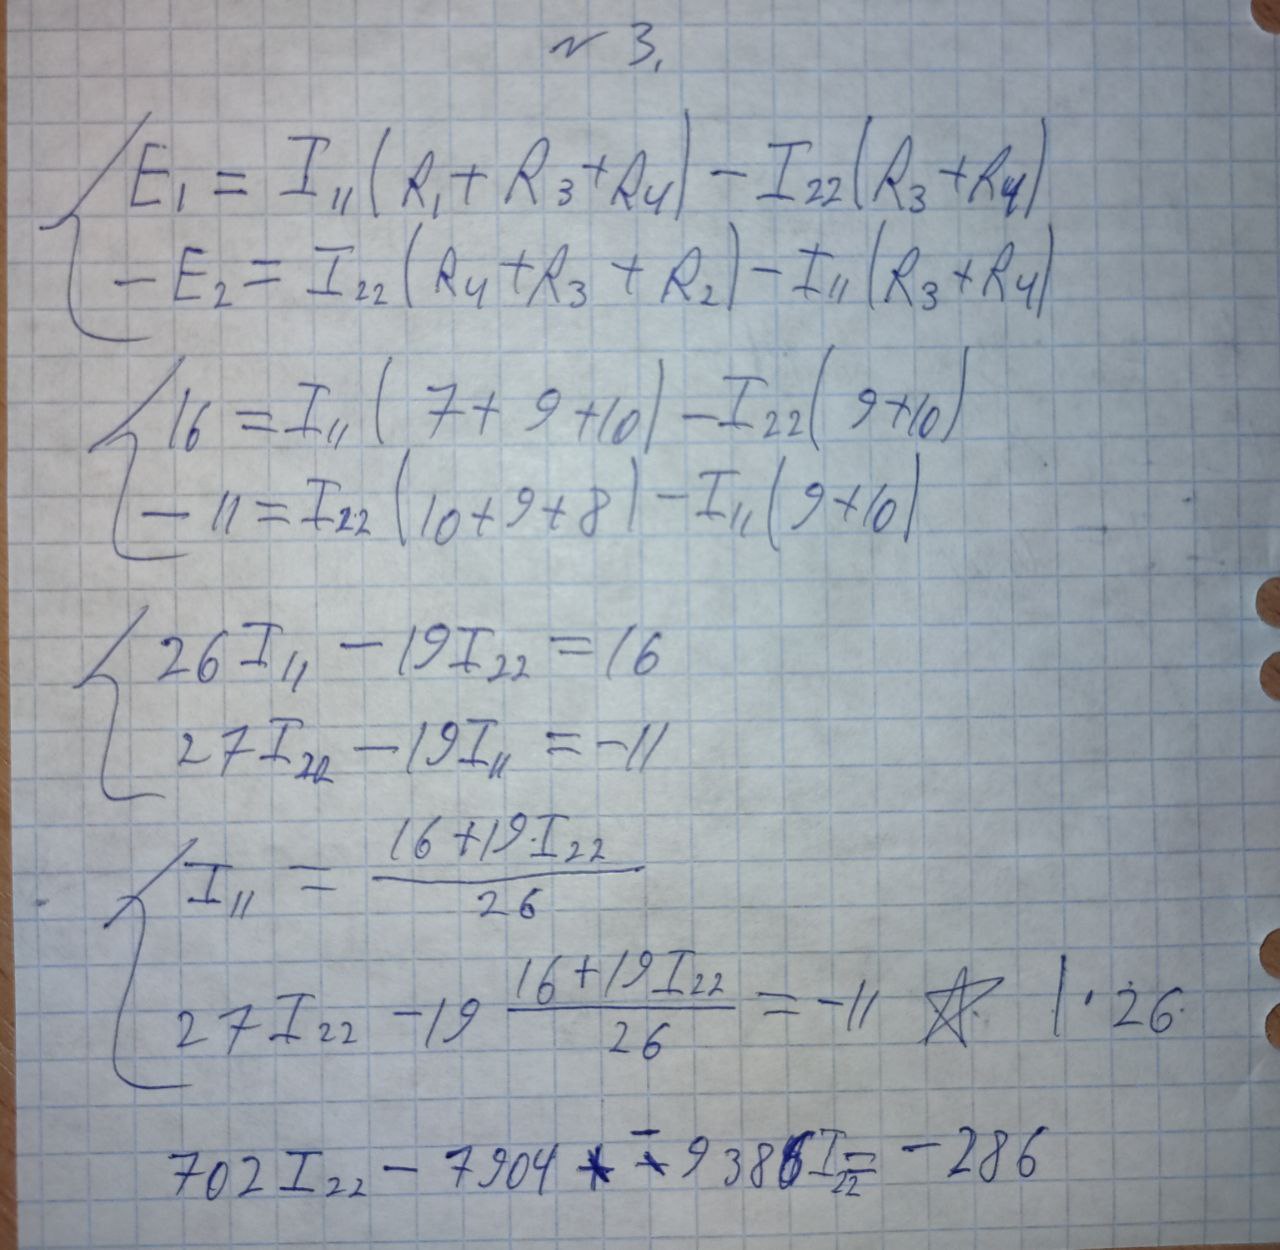 № 3.
E₁ = I₁₁(R₁ + R₃ + R₄) - I₂₂(R₃ + R₄)
- E₂ = I₂₂(R₄ + R₃ + R₂) - I₁₁(R₃ + R₄)
16 = I₁₁(7 + 9 + 10) - I₂₂(9 + 10)
- 11 = I₂₂(10 + 9 + 8) - I₁₁(9 + 10)
26 I₁₁ - 19 I₂₂ = 16
27 I₂₂ - 19 I₁₁ = -11
I₁₁ = (16 + 19·I₂₂)/26
27 I₂₂ - 19 (16 + 19 I₂₂)/26 = -11 ☆ | · 26
702 I₂₂ - 7904 - 9386 I₂₂ = - 286